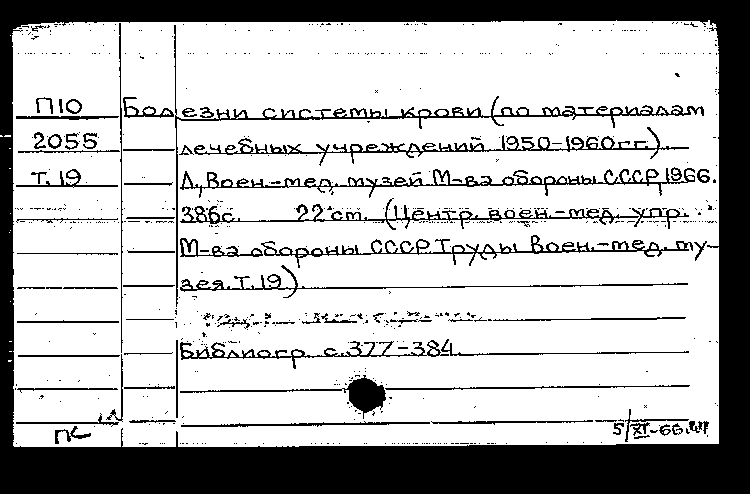 П10 Болезни системы крови (по материалам
2055 лечебных учреждений 1950-1960гг.)
Т.19 Л., Воен.-мед. музей М-ва обороны СССР, 1966.
386с. 22 cm. (Центр. воен.-мед. упр.
М-ва обороны СССР. Труды Воен.-мед. му-
зея. Т.19)
Библиогр. с.377-384.
ПК
5/XI-66